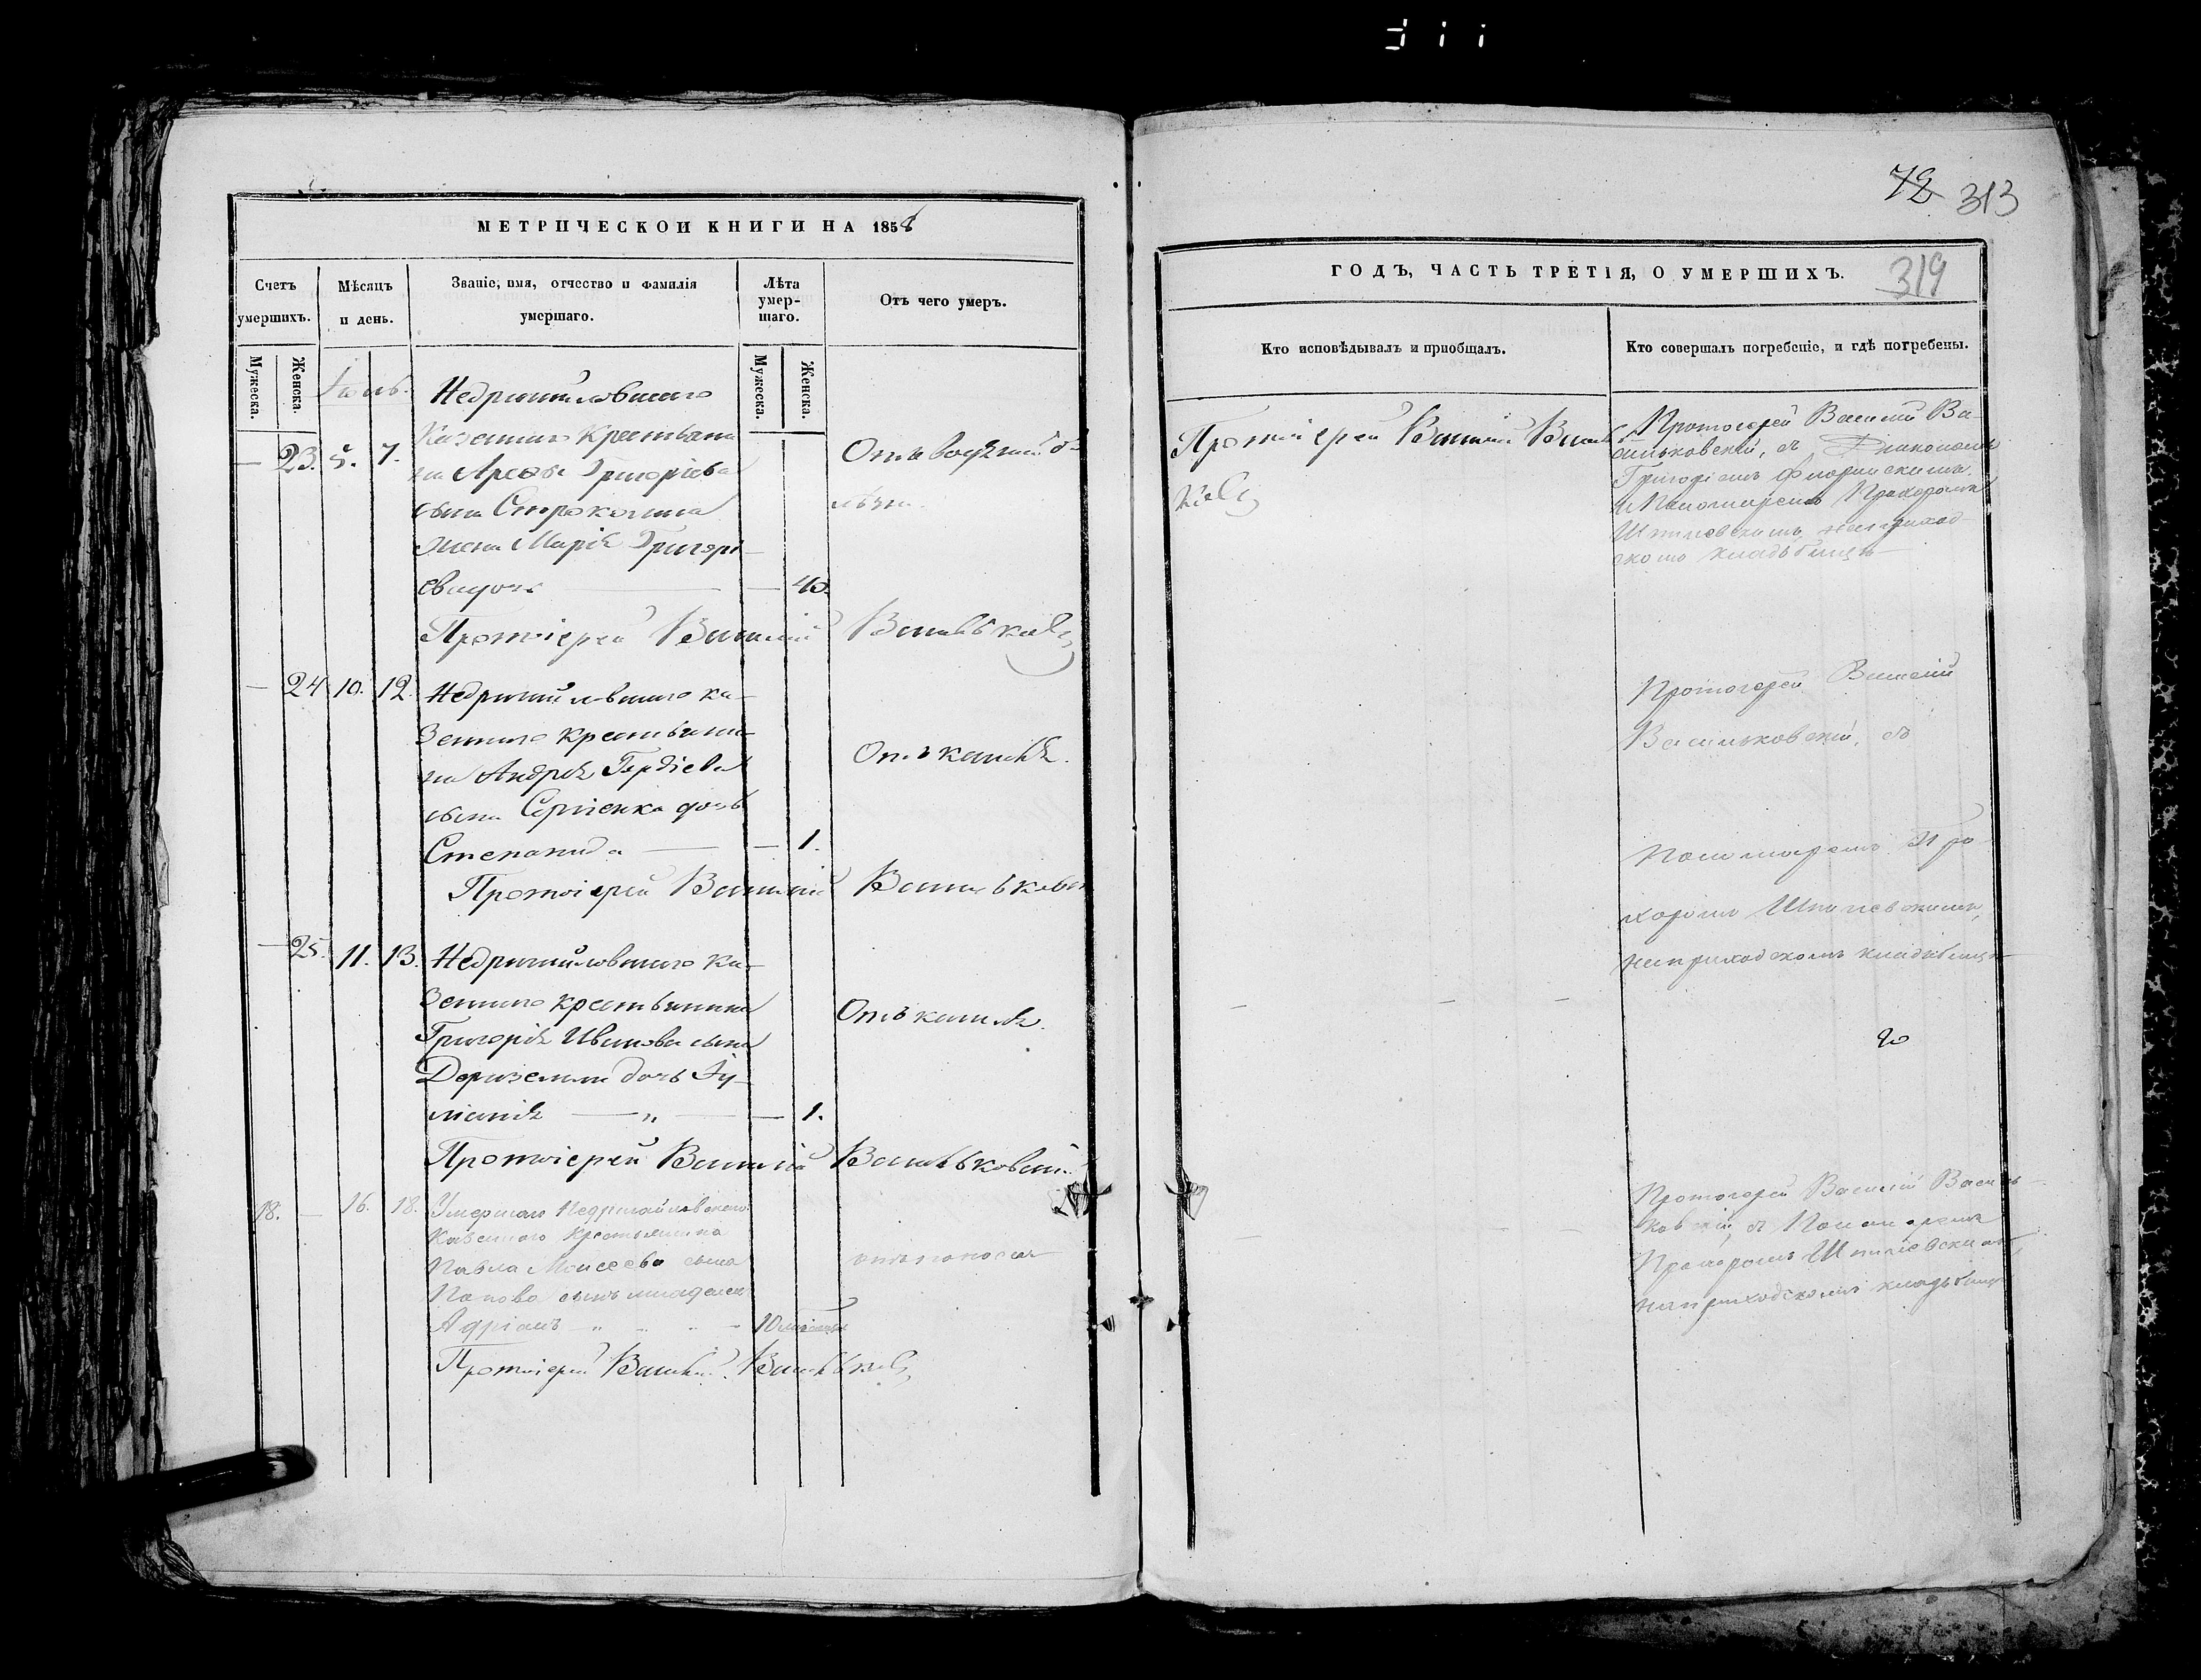 МЕТРИЧЕСКОЙ КНИГИ НА 1858
Счетъ умершихъ.
Мѣсяцъ и день.
Званіе, имя, отчество и фамилія умершаго.
Лѣта умер-шаго.
Отъ чего умеръ.
Мужеска.
Женска.
Мужеска.
Женска.
Недригайловскаго
23. 5. 7. Казеннаго Крестьяни
на Григорьева
сына
жена Марія Григорі
40.
Протоіерей Василій Васильковскій
24 10. 12. Недригайловскаго ка-
зеннаго крестьяни-
на Андрея
сына Сергіенка дочь
Отъ кашля.
Степанида 1.
Протоіерей Василій Васильковскій
25. 11. 13. Недригайловскаго ка-
зеннаго крестьянина
Григорія Иванова сына
Отъ кашля.
дочь Іу-
ліанія 1.
Протоіерей Василій Васильковскій
18. 16. 18. Недригайловскаго
Казеннаго Крестьянина
Павла Моисеева сына
Попова сынъ младенецъ
отъ поноса
Адріанъ 10
Протоіерей Василій Васильковскій
72 313
ГОДЪ, ЧАСТЬ ТРЕТІЯ, О УМЕРШИХЪ.
319
Кто исповѣдывалъ и пріобщалъ.
Кто совершалъ погребеніе, и гдѣ погребены.
Протоіерей Василій Василь
Протоіерей Василій Ва-
сильковскій, съ Діакономъ
Григоріемъ
и Пономаремъ Прохоромъ
Шпилевскимъ, на приход-
скомъ кладбищѣ
Протоіерей Василій
Васильковскій, съ
Пономаремъ Про-
хоромъ Шпилевскимъ,
на приходскомъ кладбищѣ
Протоіерей Василій Василь-
ковскій, съ Пономаремъ
Прохоромъ Шпилевскимъ,
на приходскомъ кладбищѣ